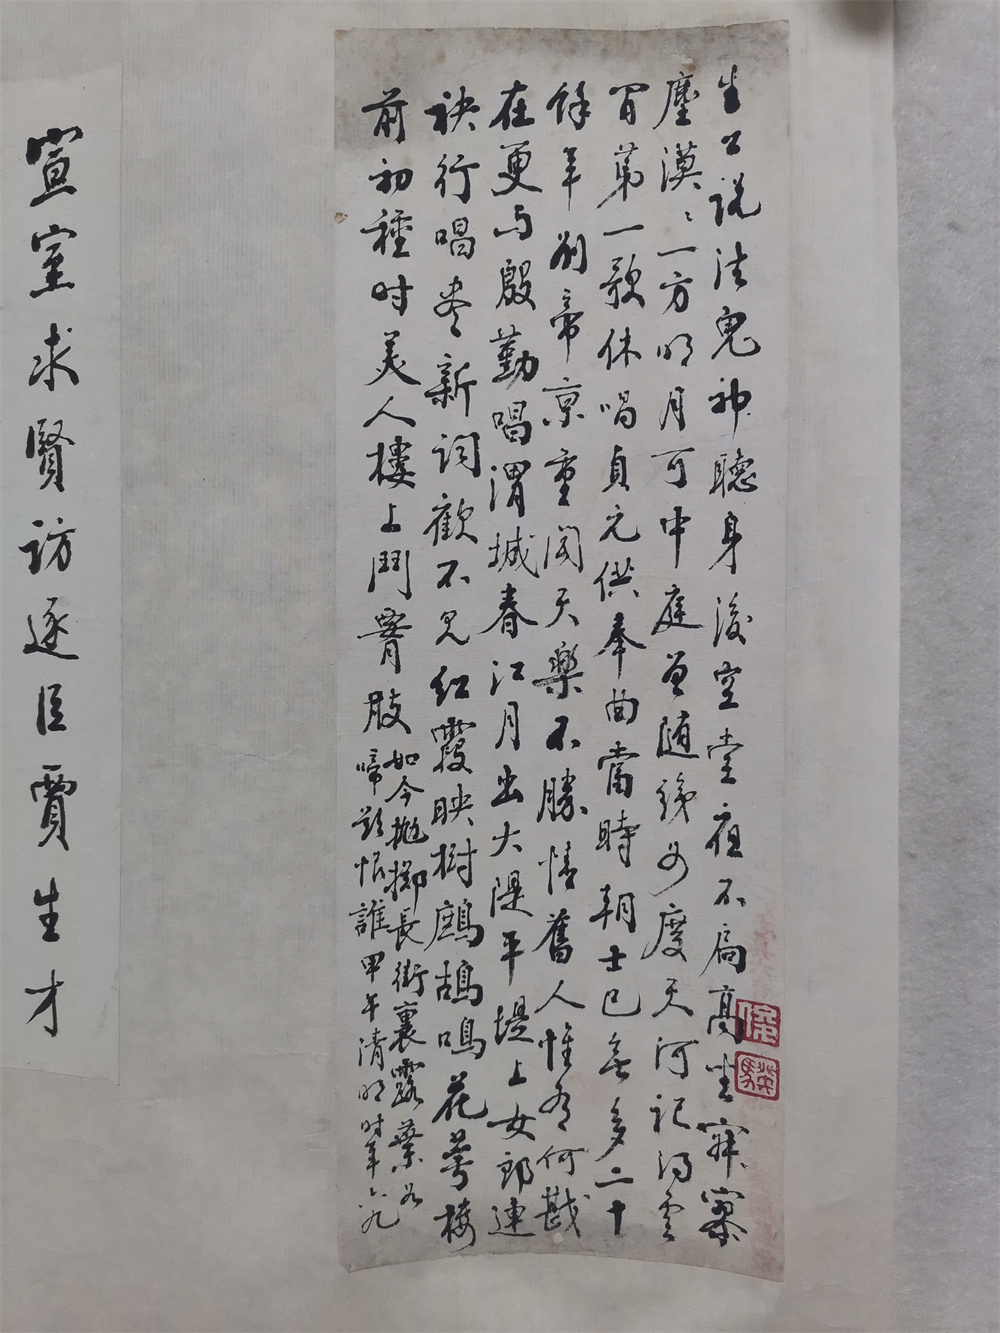 生公說法鬼神聽身後空堂夜不扃高坐寂寥
塵漠〻一方明月可中庭曾隨織女度天河記得雲
間第一歌休唱貞元供奉曲當時朝士已無多二十
餘年別帝京重聞天樂不勝情舊人惟有何戡
在更与殷勤唱渭城春江月出大隄平堤上女郎連
袂行唱盡新詞歡不見紅霞映樹鷓鴣鳴花萼樓
前初種时美人樓上鬥腰肢
如今抛擲長街裏露葉如
啼欲恨誰 甲午清明时年六九
宣室求賢訪逐臣賈生才